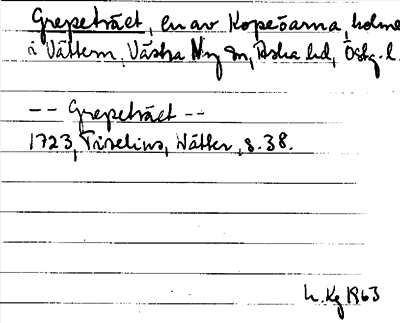 Grepeträet, en av Kopeöarna, holme
i Vättern, Västra Ny sn, Aska hd, Östg. l.
-- Grepeträet --
1723, Tiselius, Wätter, s. 38.
L. Kg 1963